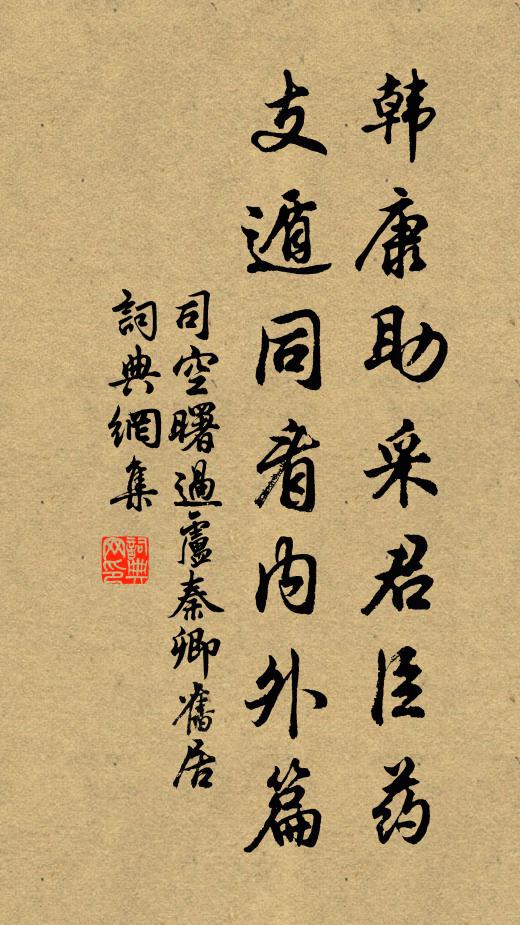 韩康助采君臣药
支遁同看内外篇
司空曙過盧秦卿舊居
詞典網集
詞典网印